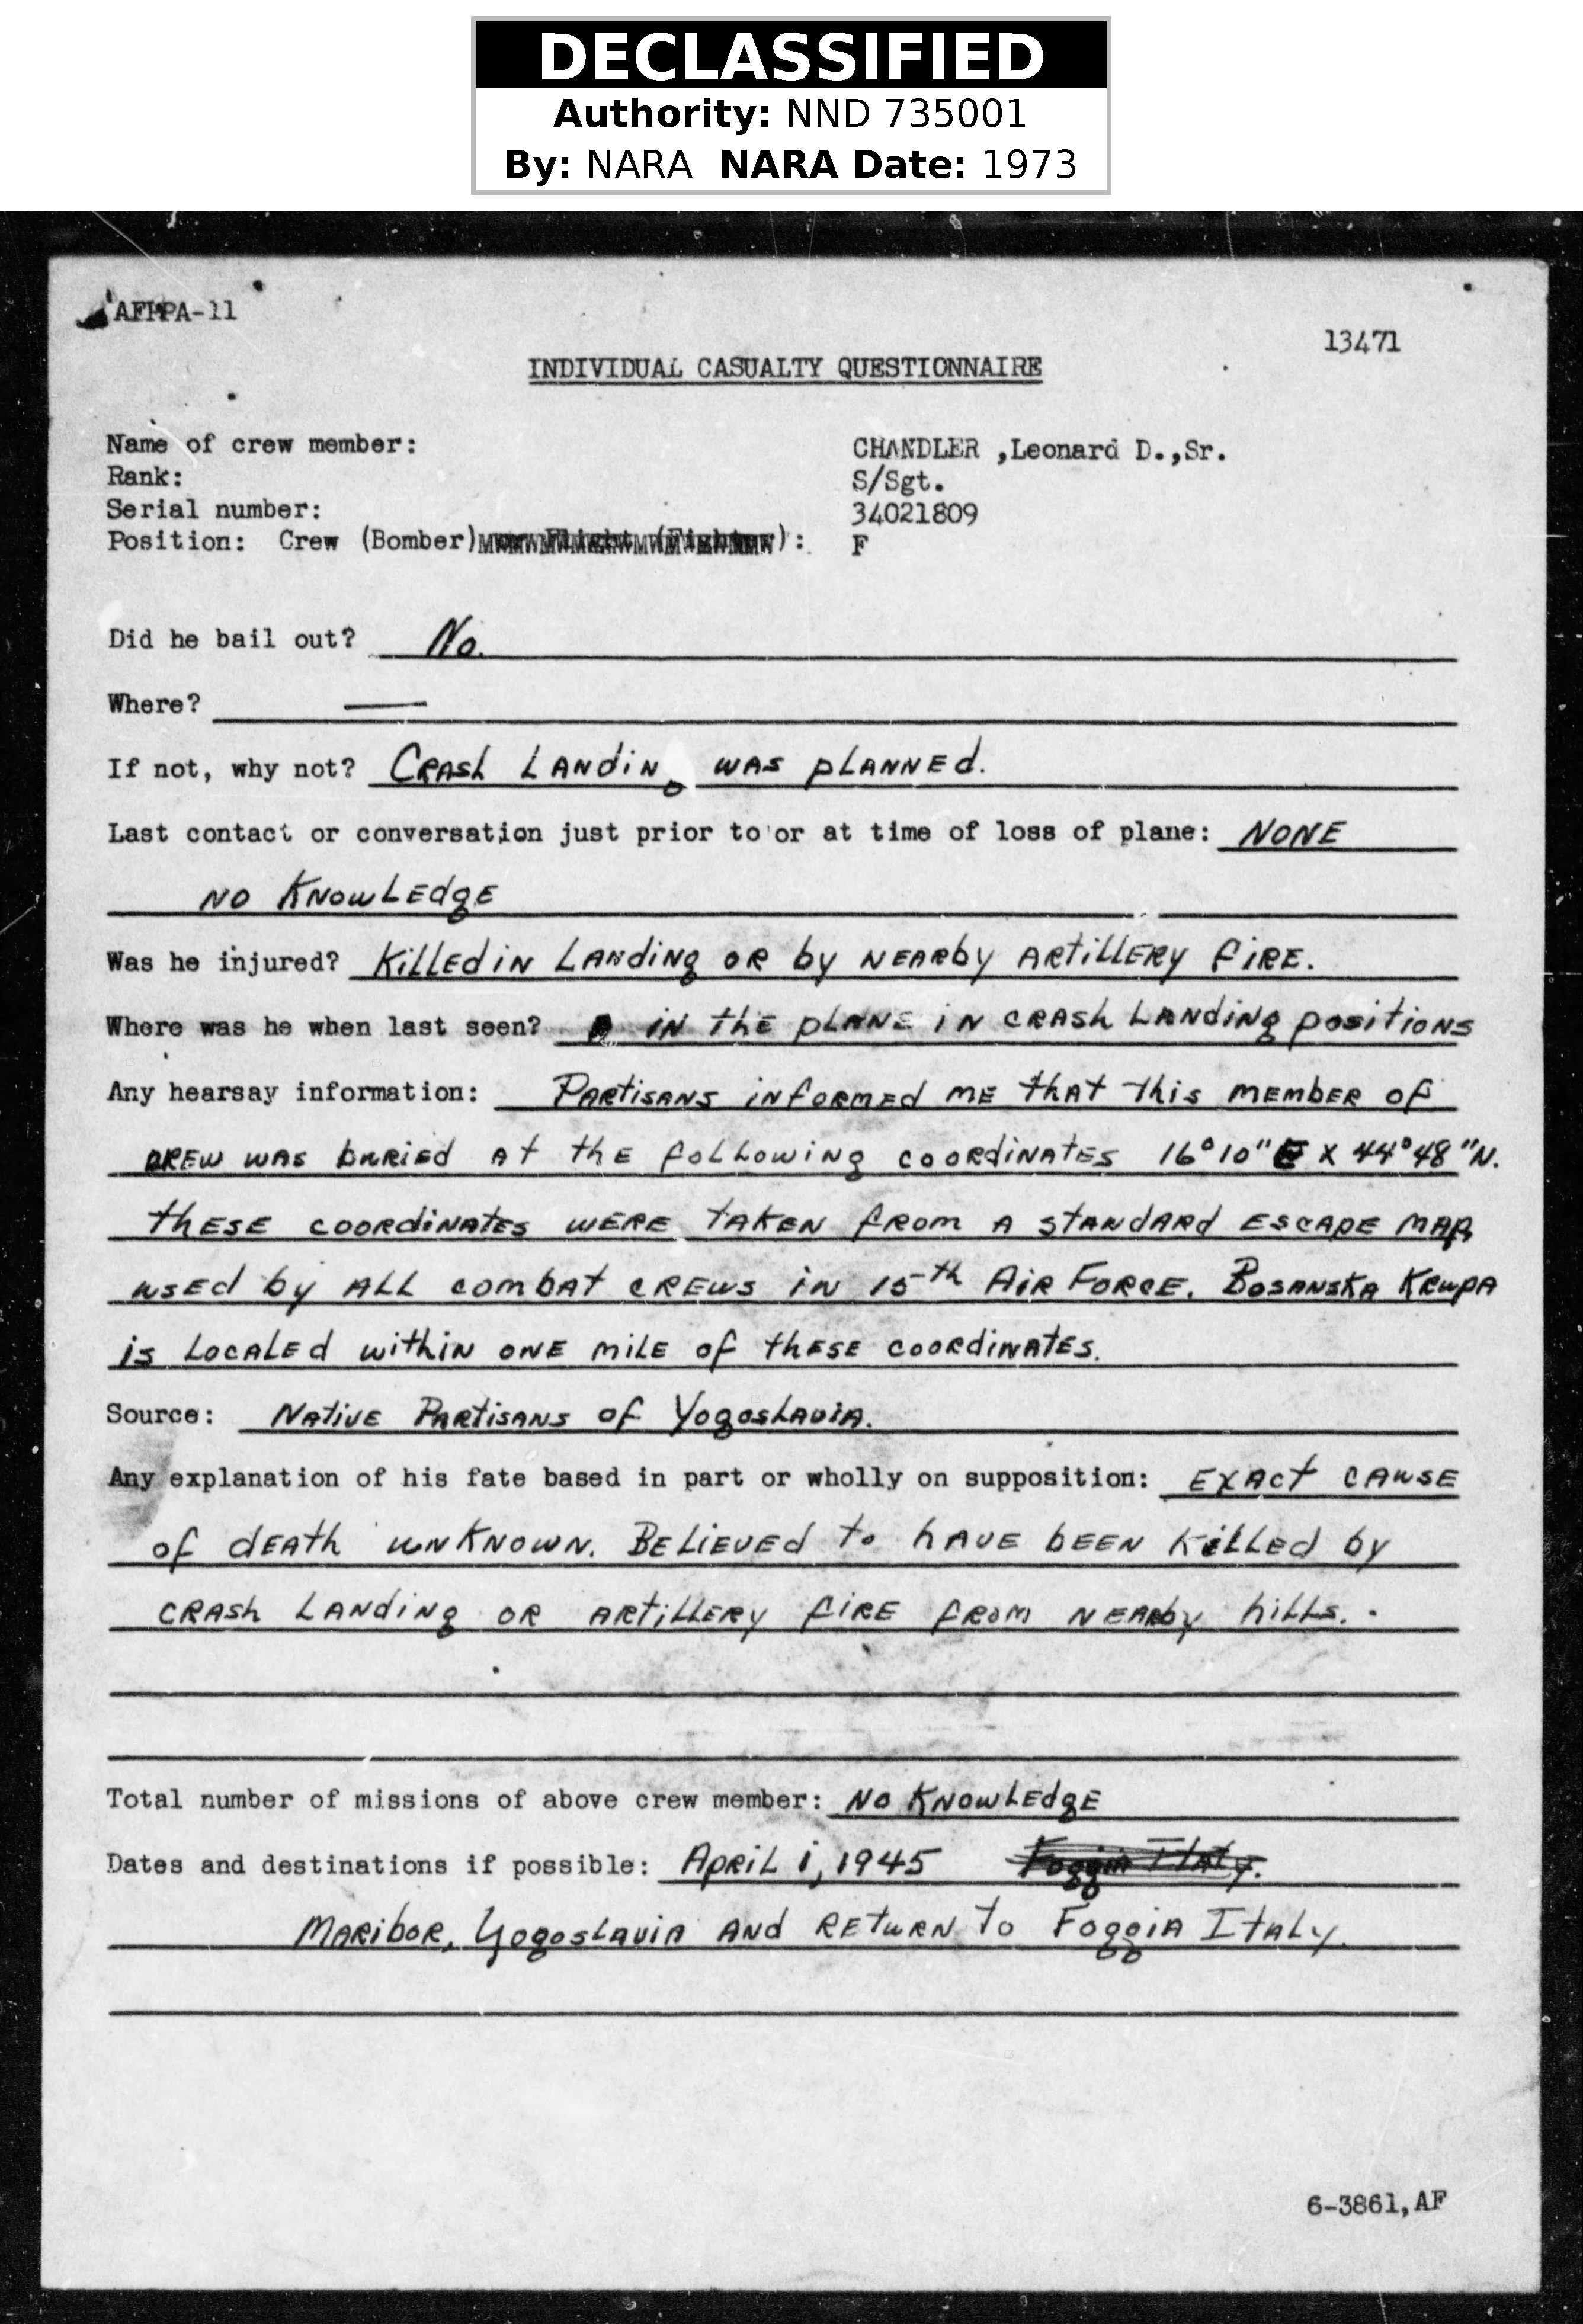 DECLASSIFIED
Authority: NND 735001
By: NARA NARA Date: 1973
AFPPA-11
13471
INDIVIDUAL CASUALTY QUESTIONNAIRE
Name of crew member: CHANDLER ,Leonard D.,Sr.
Rank: S/Sgt.
Serial number: 34021809
Position: Crew (Bomber) ): F
Did he bail out? No.
Where? —
If not, why not? Crash Landing was planned.
Last contact or conversation just prior to or at time of loss of plane: NONE
NO KNOWLEdgE
Was he injured? Killed in Landing or by nearby artillery fire.
Where was he when last seen? in the plane in crash Landing positions
Any hearsay information: Partisans informed me that this member of
crew was buried at the following coordinates 16°10"E X 44°48"N.
these coordinates were taken from a standard escape map
used by all combat crews in 15th Air Force. Bosanska Krupa
is Localed within one mile of these coordinates.
Source: Native Partisans of Yogoslavia.
Any explanation of his fate based in part or wholly on supposition: Exact cause
of death unknown. Believed to have been killed by
crash Landing or artillery fire from nearby hills.
Total number of missions of above crew member: No Knowledge
Dates and destinations if possible: April 1, 1945 Foggia Italy.
Maribor, Yogoslavia and return to Foggia Italy.
6-3861,AF